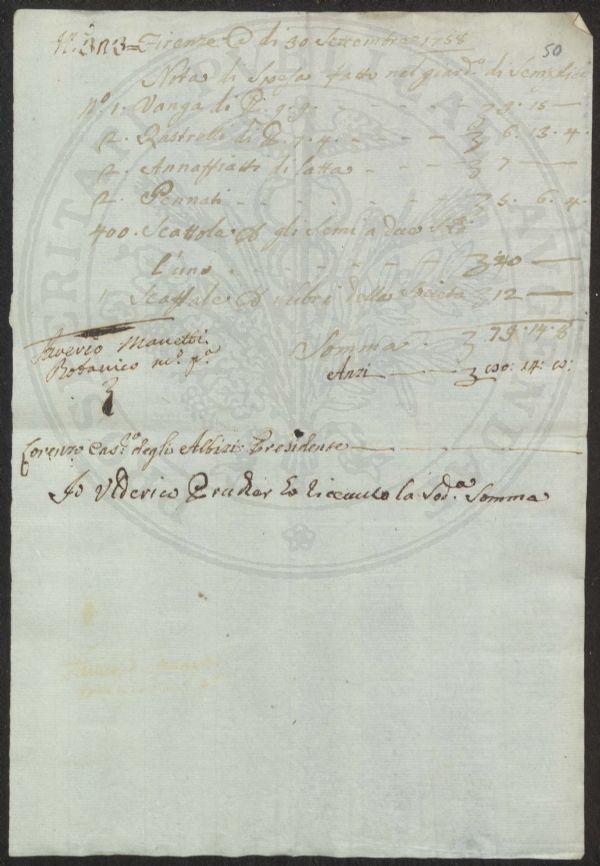 Firenze @ di 30 Settembre 1758
50
Nota di Spesa fatta nel giard.º di Semplici
Nº 1. Vanga di
9. 15 —
2. Rastrelli di
6. 13. 4.
2. Annaffiatoi di latta
7 —
2. Pennati
5. 6. 4.
400. Scattole gli Semi a due
l'uno
40 —
1 Scaffale libri della Società
12 —
Somma
79. 14. 8
Anzi 80: 14: 8:
Saverio Manetti
Botanico m.º p.ª
Lorenzo Gas.º degli Albizi Presidente
Io Vlderico Prucher ho riceuuto la Sod.ª Somma